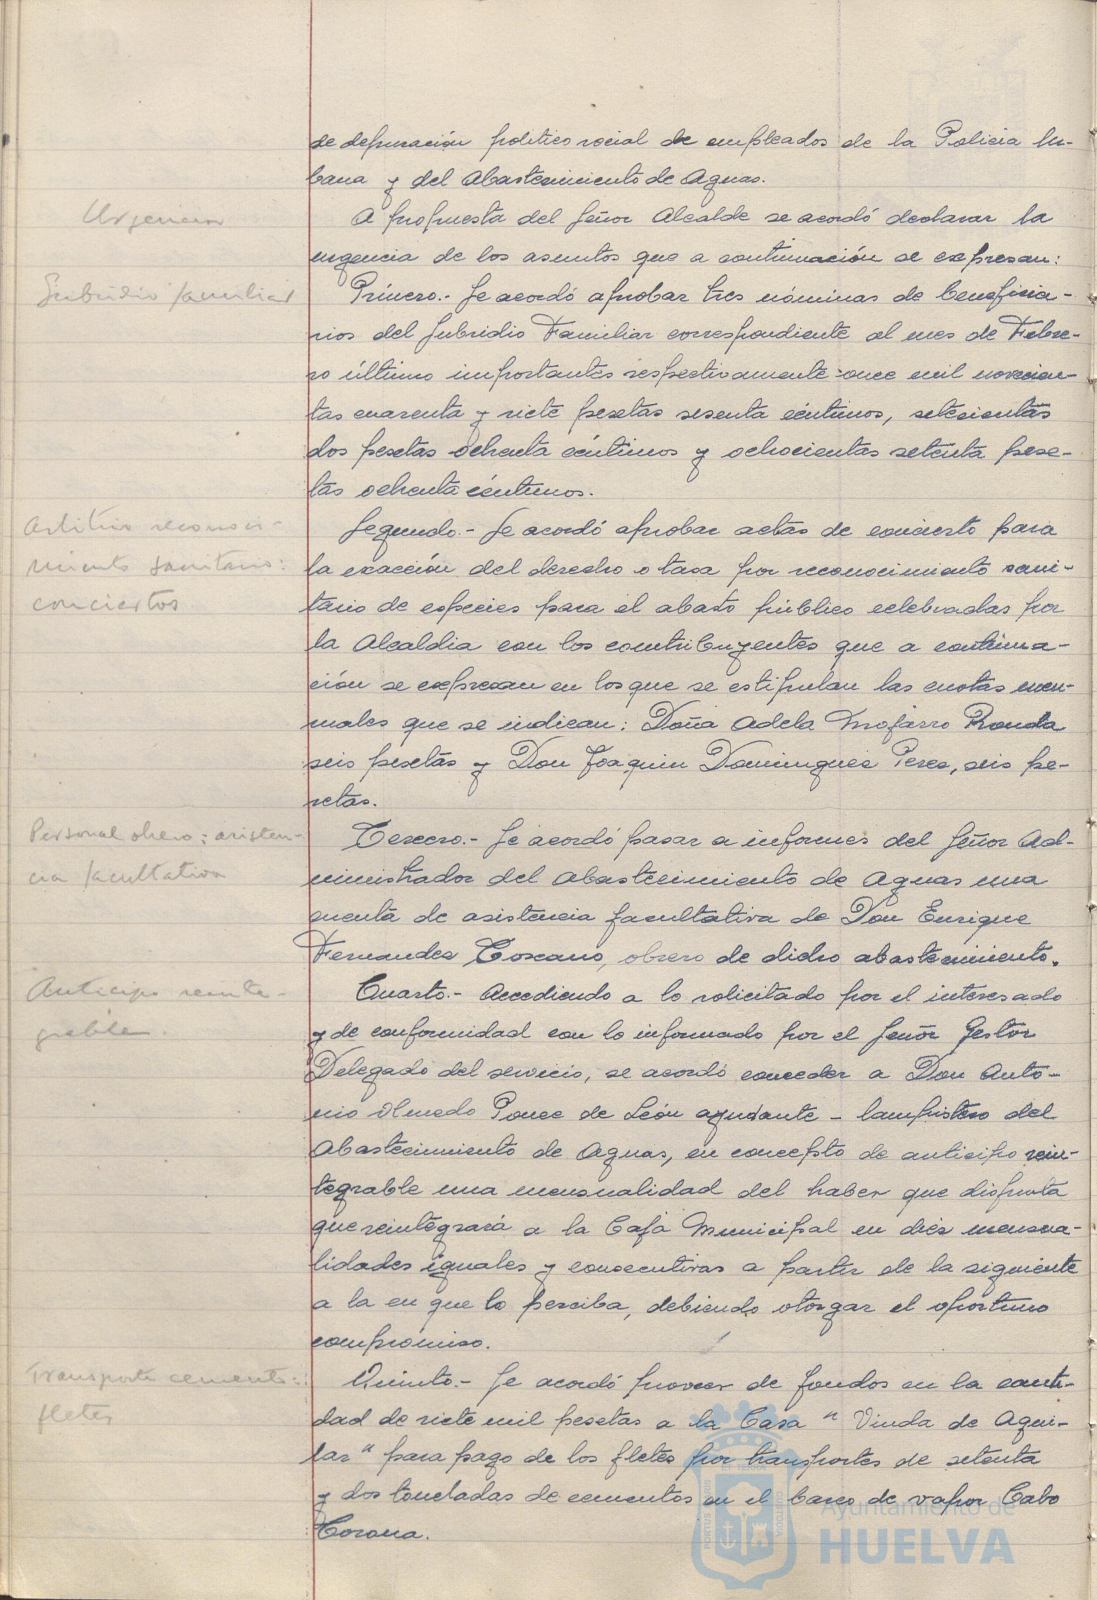 de depuración politico social de empleados de la Policia Ur-
bana y del Abastecimiento de Aguas.
Urgencia
A propuesta del Señor Alcalde se acordó declarar la
urgencia de los asuntos que a continuación se expresan:
Subsidio familiar
Primero.- Se acordó aprobar tres nóminas de beneficia-
rios del Subsidio Familiar correspondiente al mes de Febre-
ro último importantes respectivamente once mil novecien-
tas cuarenta y siete pesetas sesenta céntimos, setecientas
dos pesetas ochenta céntimos y ochocientas setenta pese-
tas ochenta céntimos.
Arbitrio reconoci-
miento sanitario:
conciertos
Segundo.- Se acordó aprobar actas de concierto para
la exacción del derecho o tasa por reconocimiento sani-
tario de especies para el abasto público celebradas por
la Alcaldia con los contribuyentes que a continua-
ción se expresan en los que se estipulan las cuotas men-
suales que se indican: Doña Adela Mojarro Ronda
seis pesetas y Don Joaquin Dominguez Perez, seis pe-
setas.
Personal obrero: asisten-
cia facultativa
Tercero.- Se acordó pasar a informes del Señor Ad-
ministrador del Abastecimiento de Aguas una
cuenta de asistencia facultativa de Don Enrique
Fernandez Toscano, obrero de dicho abastecimiento.
Anticipo reinte-
grable.
Cuarto.- Accediendo a lo solicitado por el interesado
y de conformidad con lo informado por el Señor Gestor
Delegado del servicio, se acordó conceder a Don Anto-
nio Olmedo Ponce de León ayudante - lampistero del
Abastecimiento de Aguas, en concepto de anticipo rein-
tegrable una mensualidad del haber que disfruta
que reintegrará a la Caja Municipal en diez mensua-
lidades iguales y consecutivas a partir de la siguiente
a la en que lo perciba, debiendo otorgar el oportuno
compromiso.
Transporte cemento:
fletes
Quinto.- Se acordó proveer de fondos en la canti-
dad de siete mil pesetas a la Casa " Viuda de Agui-
lar " para pago de los fletes por transportes de setenta
y dos toneladas de cementos en el barco de vapor Cabo
Corona.
Ayuntamiento de
HUELVA